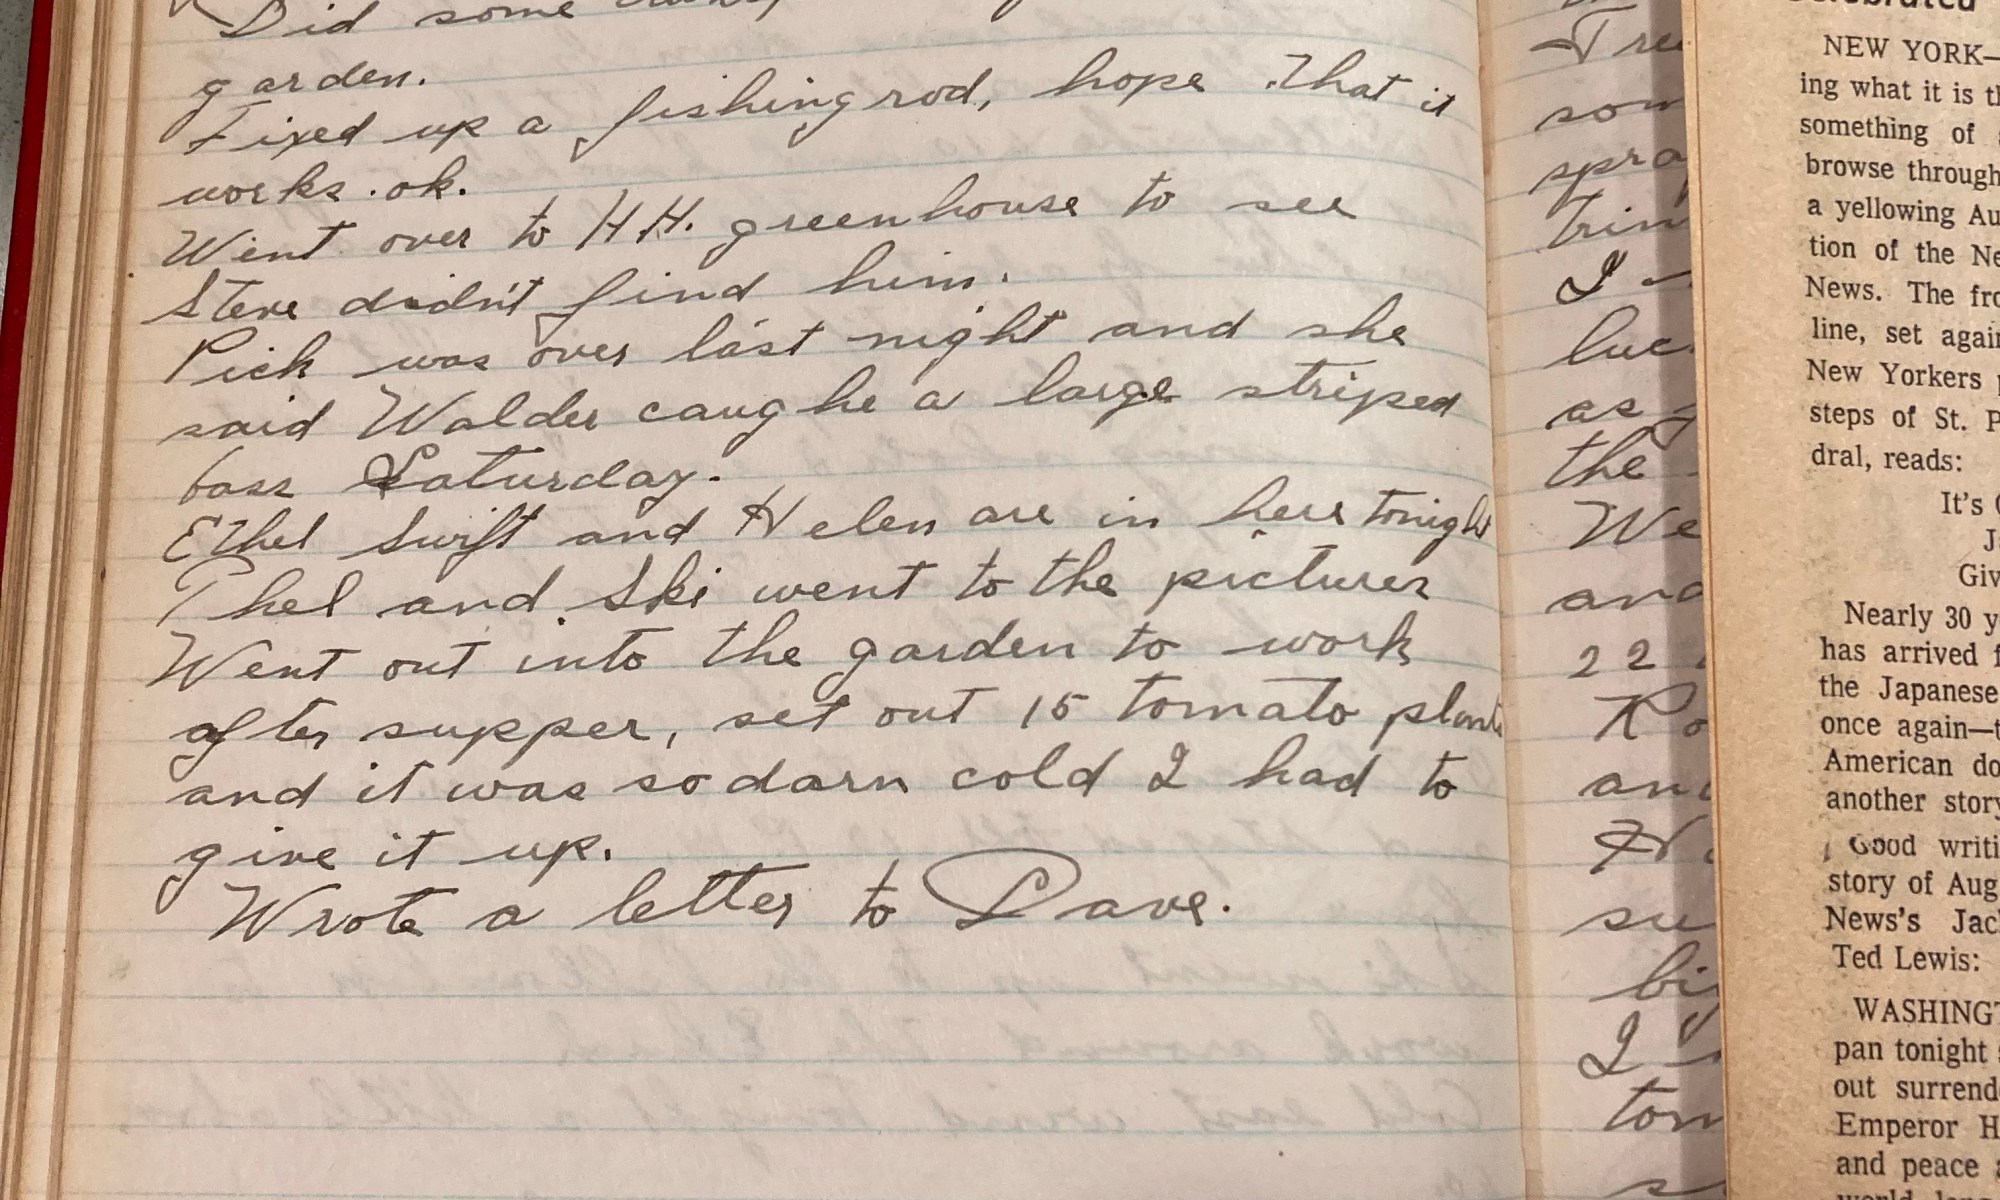 Did some
garden.
Fixed up a fishing rod, hope that it
works.ok.
Went over to H.H. greenhouse to see
Steve didn't find him.
Pick was over last night and she
said Walder caughe a large striped
bass Saturday.
Ethel Swift and Helen are in here tonight
Phel and Ski went to the pictures
Went out into the garden to work
after supper, set out 15 tomato plants
and it was so darn cold I had to
give it up.
Wrote a letter to Dave.
Tree
som
spra
trin
I
luc
as
the
We
and
22
Ro
and
H
su
big
I
tom
s
Celebrated
NEW YORK—
ing what it is th
something of
browse through
a yellowing Au
tion of the Ne
News. The fro
line, set again
New Yorkers p
steps of St. P
dral, reads:
It's
J
Giv
Nearly 30 y
has arrived f
the Japanese
once again—t
American do
another story
Good writi
story of Aug
News's Jac
Ted Lewis:
WASHINGT
pan tonight
out surrend
Emperor H
and peace a